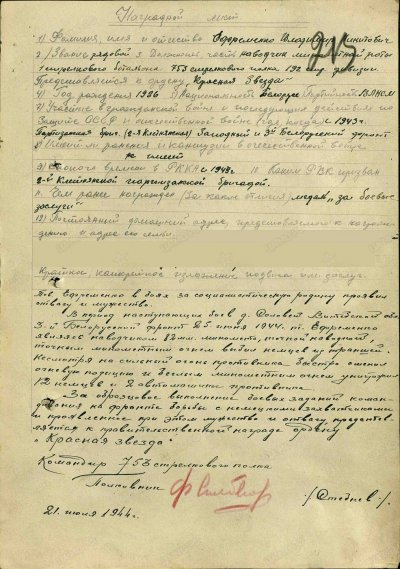 Наградной лист
1) Фамилия, имя и отчество Ефременко Владимир Никитович
2) Звание рядовой 3. Должность, часть наводчик минометной роты
1 стрелкового батальона 753 стрелкового полка 192 стр. дивизии
Представляется к ордену „Красная Звезда"
4) Год рождения 1926 5 Национальность Белорус 6 Партийность ВЛКСМ
7) Участие в гражданской войне и последующих действиях по
защите СССР и отечественной войне (где, когда) с 1943 г.
Партизанская бриг. (2-я Клетнянская) Западный и 3й Белорусский фронт
8) Имеет ли ранения и контузии в отечественной войне
не имеет
9) С какого времени в РККА с 1943 г. 10. Каким РВК призван
2-й Клетнянской партизанской бригадой.
11. Чем ранее награжден (за какие отличия) медаль „за боевые
заслуги"
12) Постоянный домашний адрес, представляемого к награж-
дению и адрес его семьи.
215
Краткое, конкретное изложение подвига или заслуг.
Тов. Ефременко в боях за социалистическую родину проявил
отвагу и мужество.
В период наступающих боев д. Витебской обл.
3-й Белорусский фронт 25 июня 1944 г. Ефременко
являясь наводчиком 82 мм. миномета, точной наводкой,
точным минометным огнем выбил немцев из траншей.
Несмотря на сильный огонь противника быстро сменил
огневую позицию и беглым минометным огнем уничтожил
12 немцев и 2 автомашины противника.
За образцовое выполнение боевых заданий коман-
дования на фронте борьбы с немецкими захватчиками
и проявленное при этом мужество и отвагу, представ-
ляется к правительственной награде ордену
„Красная звезда"
Командир 753 стрелкового полка
Полковник
21 июля 1944 г.